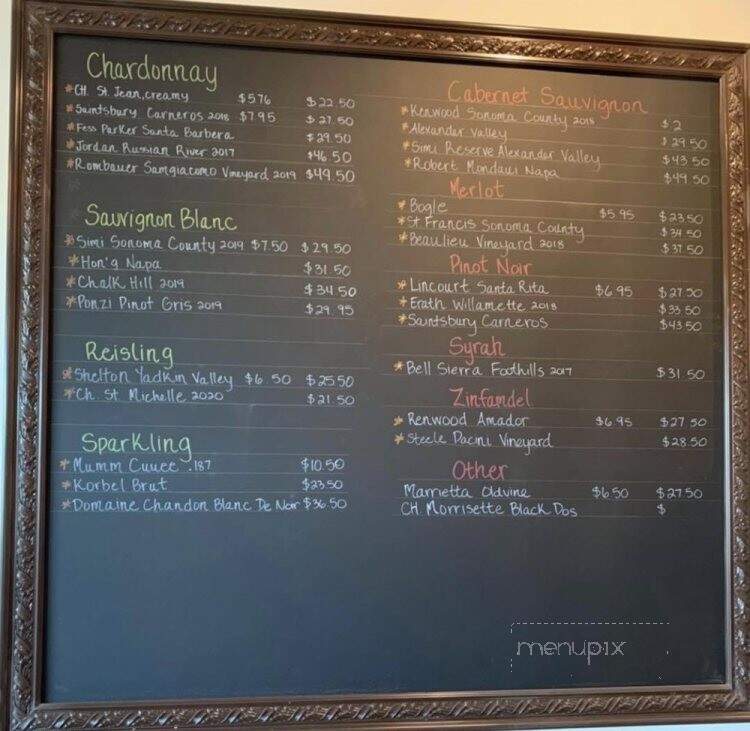 Chardonnay
*CH. St. Jean, creamy $5.76 $22.50
*Saintsbury Carneros 2018 $7.95 $27.50
*Fess Parker Santa Barbera $29.50
*Jordan Russian River 2017 $46.50
*Rombauer Samgiacomo Vineyard 2019 $49.50
Sauvignon Blanc
*Simi Sonoma County 2019 $7.50 $29.50
*Hon'g Napa $31.50
*Chalk Hill 2019 $34.50
*Ponzi Pinot Gris 2019 $29.95
Reisling
*Shelton Yadkin Valley $6.50 $25.50
*Ch. St Michelle 2020 $21.50
Sparkling
*Mumm Cuuee .187 $10.50
*Korbel Brut $23.50
*Domaine Chandon Blanc De Noir $36.50
Cabernet Sauvignon
*Kenwood Sonoma County 2018 $2
*Alexander Valley $29.50
*Simi Reserve Alexander Valley $43.50
*Robert Mondavi Napa $49.50
Merlot
*Bogle $5.95 $23.50
*St Francis Sonoma County $34.50
*Beaulieu Vineyard 2018 $37.50
Pinot Noir
*Lincourt Santa Rita $6.95 $27.50
*Erath Willamette 2018 $33.50
*Saintsbury Carneros $43.50
Syrah
*Bell Sierra Foothills 2017 $31.50
Zinfandel
*Renwood Amador $6.95 $27.50
*Steele Pacini Vineyard $28.50
Other
Marrietta Oldvine $6.50 $27.50
CH Morrisette Black Dos $
menupix